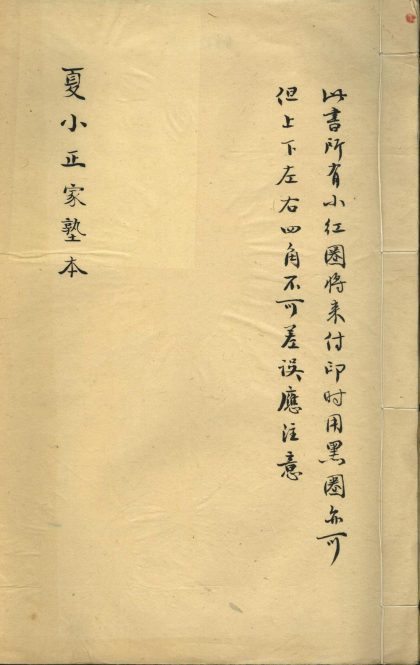 此書所有小红圈将来付印时用黑圈亦可
但上下左右四角不可差误應注意
夏小正家塾本